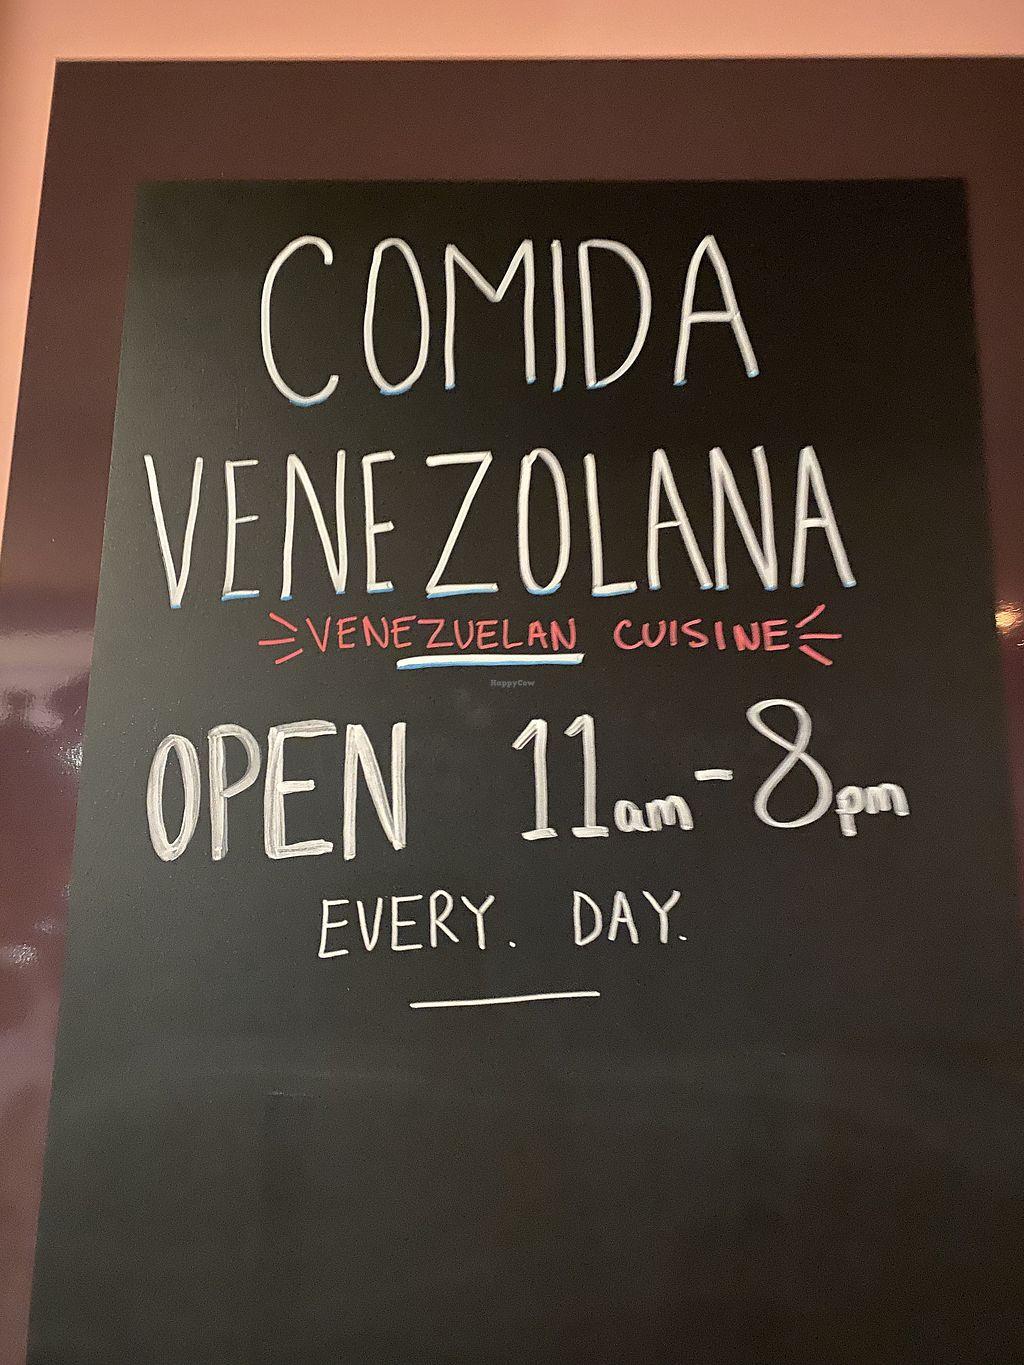 COMIDA
VENEZOLANA
VENEZUELAN CUISINE
HappyCow
OPEN 11am-8pm
EVERY. DAY.